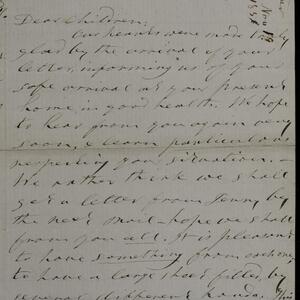 Dear Children,
Our hearts were made truly
glad by the arrival of your
letter, informing us of your
safe arrival at your present
home in good health. We hope
to hear from you again very
soon, & learn particulars
respecting your situation. —
We rather think we shall
get a letter from Jenny by
the next mail — hope we shall
from you all. It is pleasant
to have something from each one,
to have a large sheet filled by
several different hands. This
Nov 19